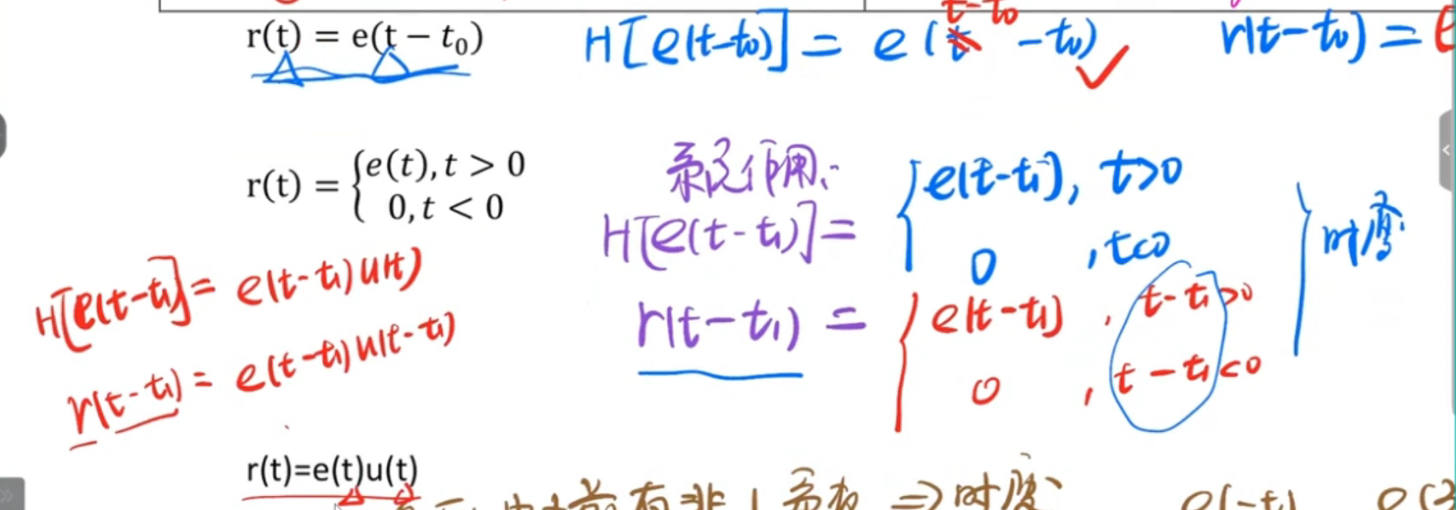 r(t) = e(t − t₀)
H[e(t-t₀)] = e(t-t₀ -t₀) ✓
r(t-t₀) =
r(t) = {e(t), t > 0
0, t < 0
系统作用:
H[e(t-t₁)] = {e(t-t₁), t>0
0, t<0
} 时变
r(t-t₁) = {e(t-t₁), t-t₁>0
0, t-t₁<0
H[e(t-t₁)] = e(t-t₁)u(t)
r(t-t₁) = e(t-t₁)u(t-t₁)
r(t)=e(t)u(t)
⇒时变